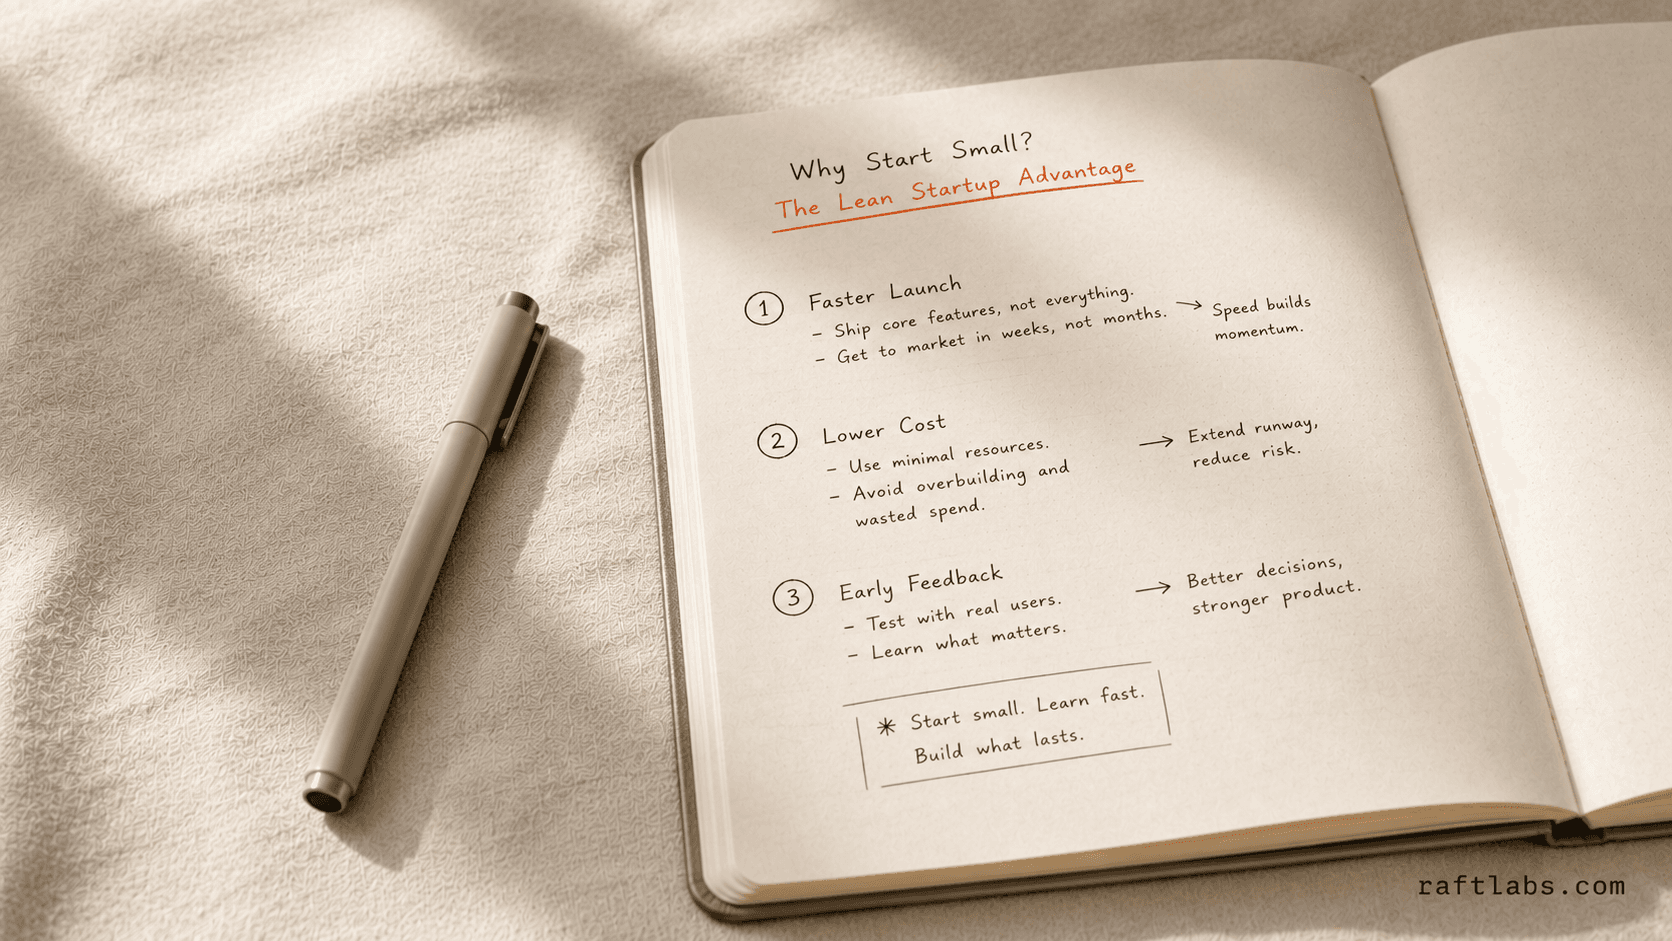 Why Start Small?
The Lean Startup Advantage
1 Faster Launch
– Ship core features, not everything.
– Get to market in weeks, not months.
→ Speed builds
momentum.
2 Lower Cost
– Use minimal resources.
– Avoid overbuilding and
wasted spend.
→ Extend runway,
reduce risk.
3 Early Feedback
– Test with real users.
– Learn what matters.
→ Better decisions,
stronger product.
* Start small. Learn fast.
Build what lasts.
raftlabs.com